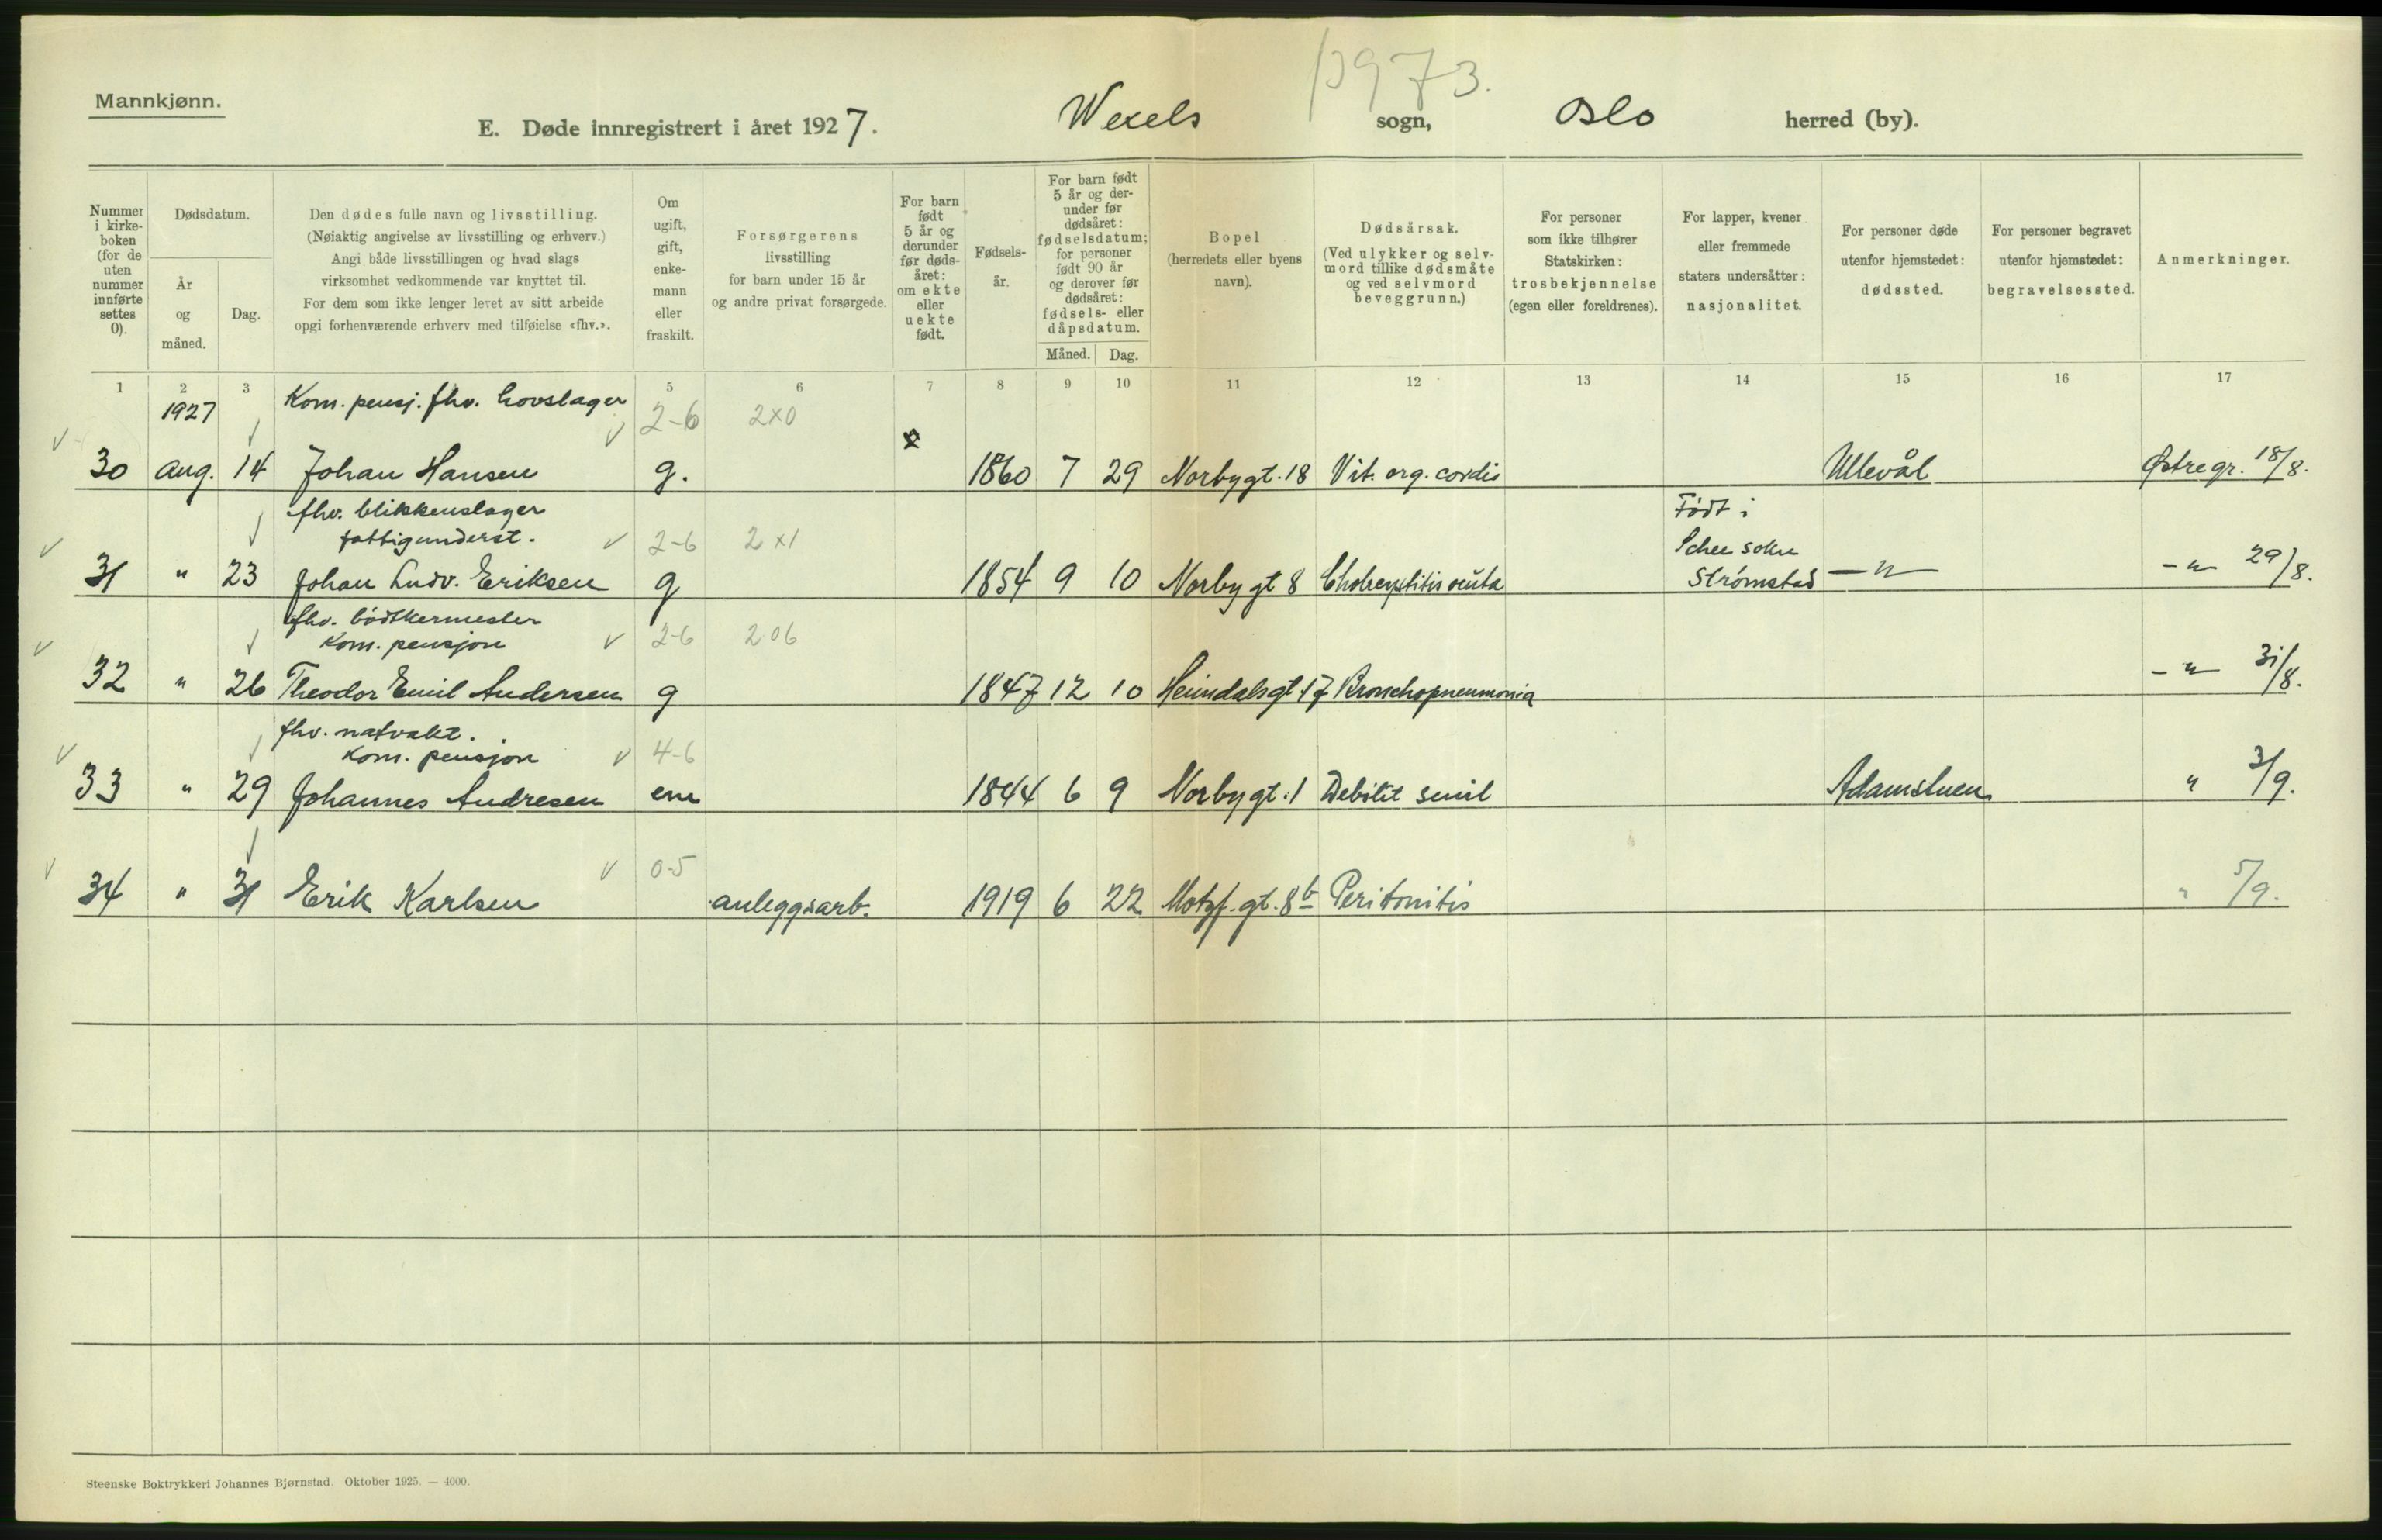 1973.
Mannkjønn.
E. Døde innregistrert i året 1927. Wexels sogn, Oslo herred (by).
Nummer i kirke-boken (for de uten nummer innførte settes 0).
Dødsdatum.
År og måned.
Dag.
Den dødes fulle navn og livsstilling.
(Nøiaktig angivelse av livsstilling og erhverv.)
Angi både livsstillingen og hvad slags
virksomhet vedkommende var knyttet til.
For dem som ikke lenger levet av sitt arbeide
opgi forhenværende erhverv med tilføielse «fhv.».
Om ugift, gift, enke-mann eller fraskilt.
Forsørgerens
livsstilling
for barn under 15 år
og andre privat forsørgede.
For barn født 5 år og derunder før døds-året: om ekte eller uekte født.
Fødsels-år.
For barn født 5 år og der-under før dødsåret: fødselsdatum; for personer født 90 år og derover før dødsåret: fødsels- eller dåpsdatum.
Måned. Dag.
Bopel
(herredets eller byens
navn).
Dødsårsak.
(Ved ulykker og selv-
mord tillike dødsmåte
og ved selvmord
beveggrunn.)
For personer
som ikke tilhører
Statskirken:
trosbekjennelse
(egen eller foreldrenes).
For lapper, kvener
eller fremmede
staters undersåtter:
nasjonalitet.
For personer døde
utenfor hjemstedet:
dødssted.
For personer begravet
utenfor hjemstedet:
begravelsessted.
Anmerkninger.
1 2 3 5 6 7 8 9 10 11 12 13 14 15 16 17
1927 Kom. pensj. fhv. hovslager 2-6 2x0
30 Aug. 14 Johan Hansen g. 1860 7 29 Norbygt. 18 Vit. org. cordis Ullevål Østre gr. 18/8.
fhv. blikkenslager Født i
fattigunderst. 2-6 2x1 sokn
31 " 23 Johan Ludv. Eriksen g 1854 9 10 Norbygt 8 Strømstad —"— —"— 29/8.
fhv. bødtkermester
Kom. pensjon 2-6 206
32 " 26 Theodor Emil Andersen g 1847 12 10 Heimdalsgt 17 Bronchopneumonia —"— 31/8.
fhv. natvakt.
Kom. pensjon 4-6
33 " 29 Johannes Andresen em 1844 6 9 Norbygt. 1 Debilit senil Adamstuen " 3/9.
0-5
34 " 31 Erik Karlsen anleggsarb. 1919 6 22 Motzf. gt. 8b Peritonitis " 5/9.
Steenske Boktrykkeri Johannes Bjørnstad. Oktober 1925. — 4000.